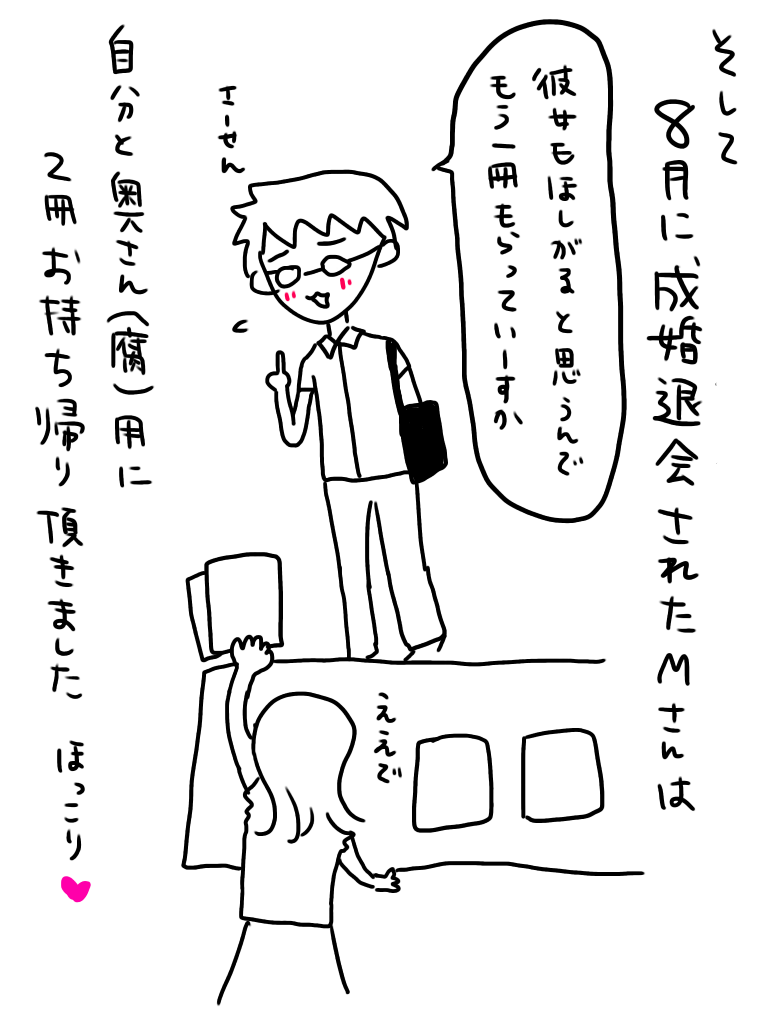 そして
8月に、成婚退会されたMさんは
彼女もほしがると思うんで
もう一冊もらっていーすか
さーせん
ええで
自分と奥さん(腐)用に
2冊お持ち帰り頂きました ほっこり